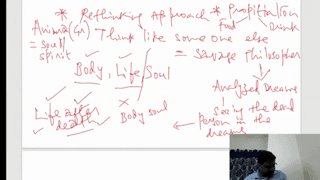 * Rethinking Approach * Propitiation
Anima(Gr) Think like some one else Food Drink
= Soul/ spirit = Savage Philosopher
Body, Life, Soul Analysed Dreams
x seeing the dead
Life after Body soul ← Person in the
death dreams